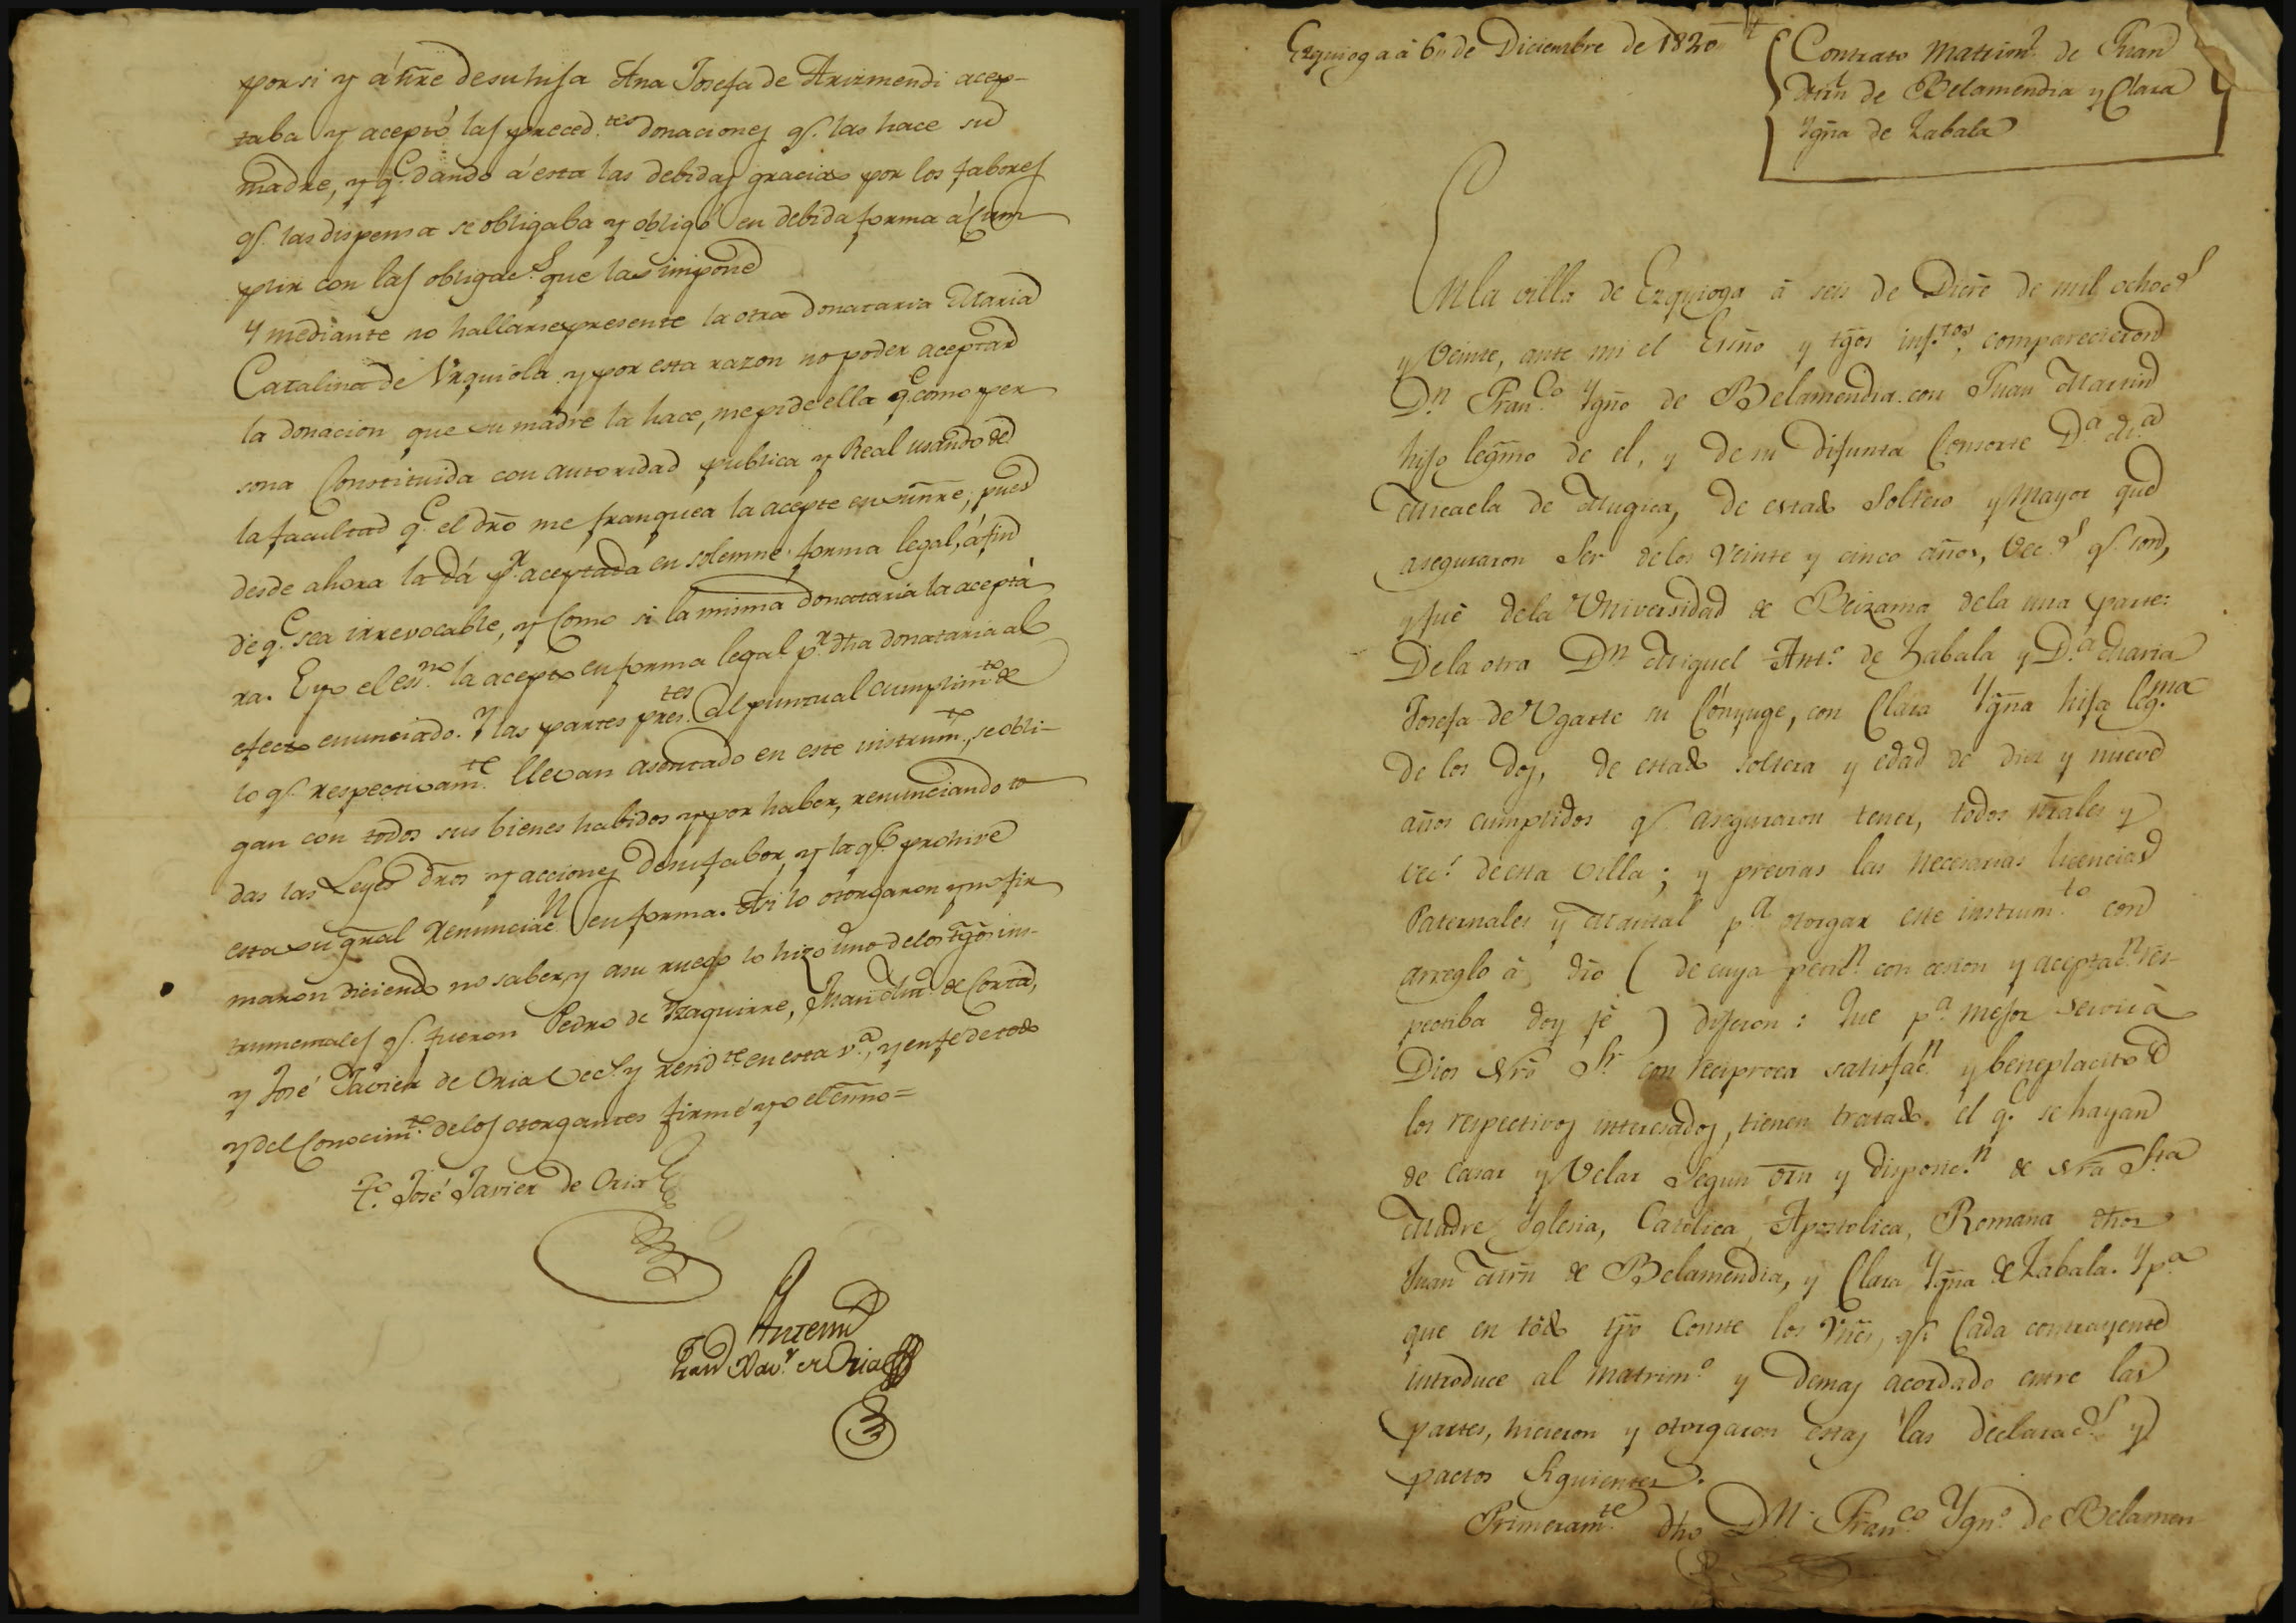 por si y á nr̃e de su hija Ana Josefa de Arizmendi acep-
taba y aceptó las preced.tes donaciones q.e las hace su
madre, y q.e dando á esta las debidas gracias por los fabores
q.e las dispensa se obligaba y obligó en debida forma á cum
plir con las obligac.s que las impone
Y mediante no hallarse presente la otra donataria Maria
Catalina de Urquiola y por esta razon no poder aceptar
la donacion que su madre la hace, me pide ella q.e como per
sona Constituida con autoridad publica y Real usando de
la facultad q.e el dr̃o me franquea la acepte en su nr̃e; pues
desde ahora la dá p.r aceptada en solemne forma legal, á fin
de q.e sea irrevocable, y como si la misma donataria la acepta
ra. E yo el ess.no la acepto en forma legal p.r dha donataria al
efecto enunciado. Y las partes pres.tes al puntual cumplim.to de
lo q.e respectivam.te llevan asentado en este instrum.to, se obli-
gan con todos sus bienes habidos y por haber, renunciando to
das las Leyes dr̃os y acciones de su fabor, y la q.e prohive
esta su gr̃al renunciac.n en forma. Asi lo otorgaron y no fir
maron diciendo no saber, y a su ruego lo hizo uno de los tg̃os ins-
trumentales q.e fueron Pedro de Yzaguirre, Juan Mrn̄ de Corta,
y José Javier de Oria vec.s y resid.tes en esta v.a, y en fé de todo
y del Conocim.to de los otorgantes firmé yo el esn̄o=
T.o José Javier de Oria
Antemi
Juan Xav.r de Oria
Ezquioga á 6 de Diciembre de 1820
Contrato Matrim.l de Juan
Mrn̄ de Belamendia y Clara
Ygñā de Zabala
En la villa de Ezquioga á seis de Dicr̃e de mil ochoc.s
y Veinte, ante mi el Esn̄o y tg̃os inf.tos, comparecieron
D.n Fran.co Ygño de Belamendia con Juan Martin
hijo legm̃o de el, y de su difunta Consorte D.a M.a
Micaela de Mugica, de estado Soltero y Mayor que
aseguraron Ser de los Veinte y cinco años, Vec.s q.e son,
y fué de la Universidad de Beizama de la una parte:
De la otra D.n Miguel Ant.o de Zabala y D.a Maria
Josefa de Ugarte su Cónyuge, con Clara Ygñā hija leg.ma
de los dos, de estado soltera y edad de diez y nueve
años cumplidos q.e aseguraron tener, todos nr̃ales y
vec.s de esta villa; y previas las necesarias licencias
Paternales y Marital p.a otorgar este instrum.to con
arreglo á dr̃o (de cuya petic.n concesion y aceptac.n res-
pectiba doy fé) dijeron: Que p.a mejor servir á
Dios Nr̃o S.r con reciproca satisfac.n y beneplacito de
los respectivos interesados, tienen tratado el q.e se hayan
de Casar y Velar Segun orn̄ y disposic.n de Nr̃a S.ta
Madre Iglesia, Católica, Apostolica, Romana dhos
Juan Mrn̄ de Belamendia, y Clara Ygñā de Zabala. Y p.a
que en todo tpo Conste los Vn̄es q.e Cada contrayente
introduce al matrim.o y demas acordado entre las
partes, hicieron y otorgaron estas las declarac.s y
pactos Siguientes.
Primeram.te dho D.n Fran.co Ygn.o de Belamen